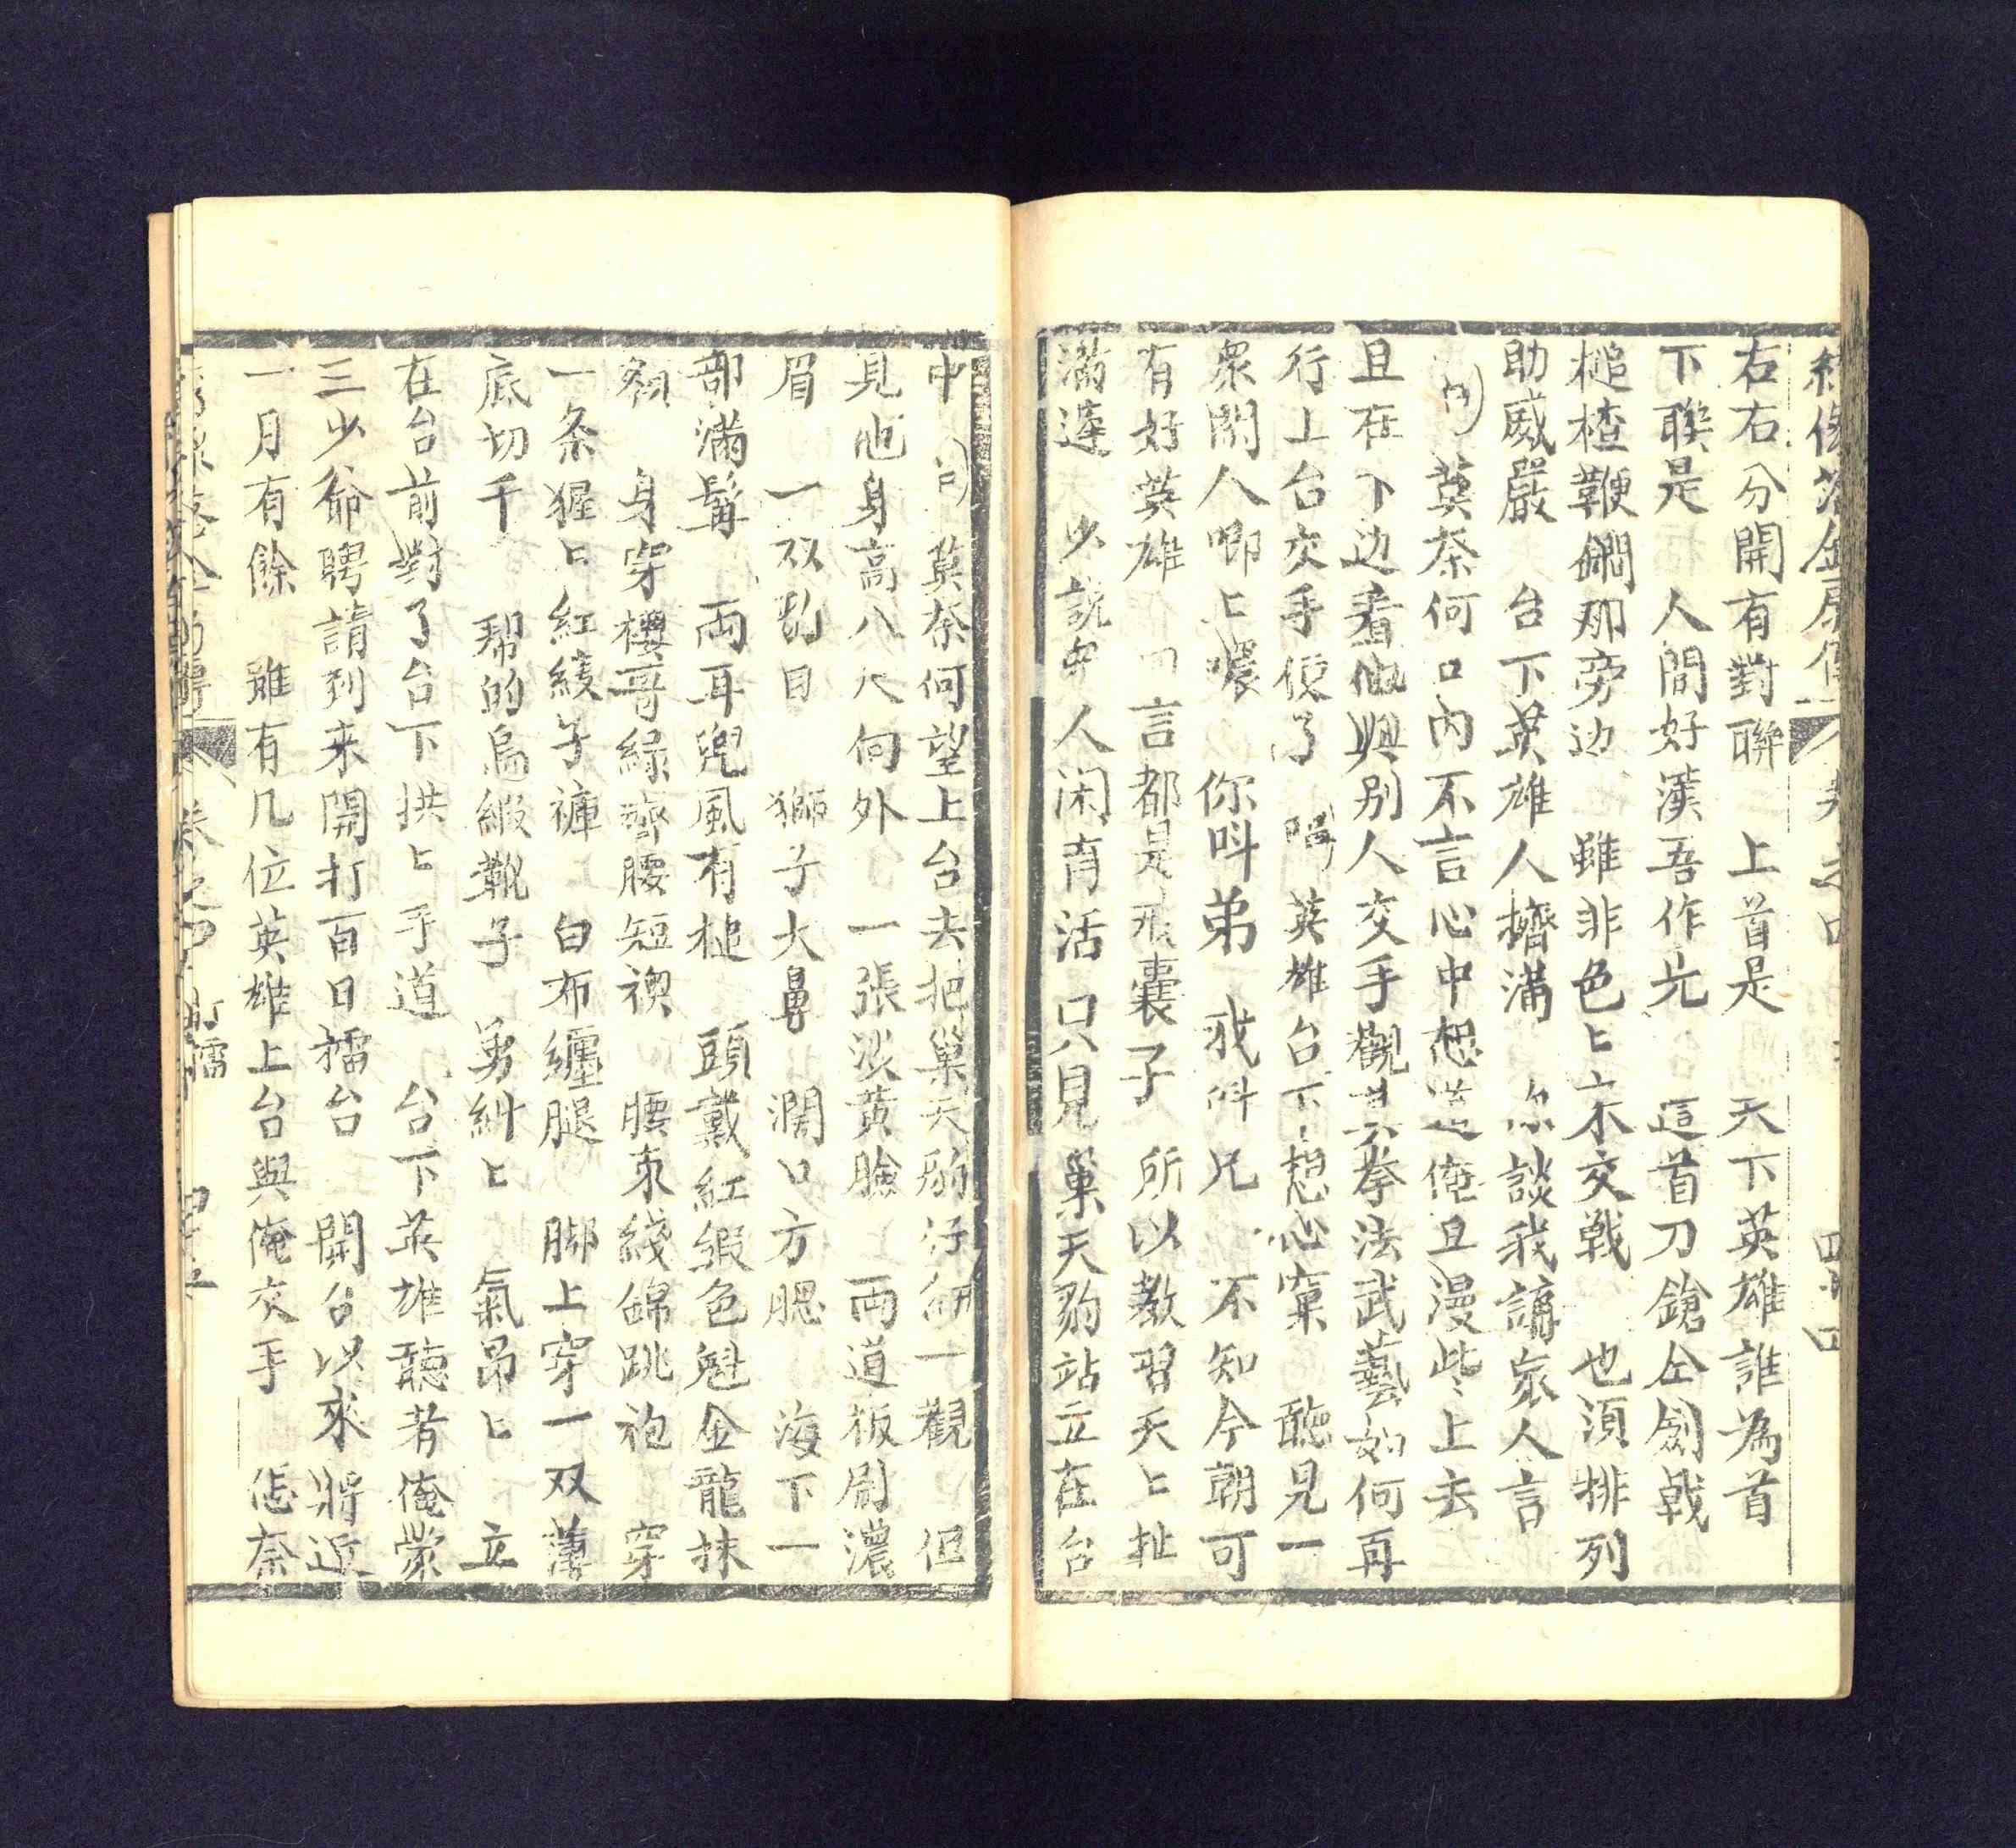 右右分開有對聯　上首是　天下英雄誰為首
下聯是　人間好漢吾作先　這首刀鎗仝劍戟
槌楂鞭鐧那旁边　雖非色匕木交戰　也須排列
助威嚴　台下英雄人擠滿　你談我講衆人言
莫奈何口內不言心中想道俺且漫些上去
且在下边看他與別人交手觀其拳法武藝如何再
行上台交手便了　英雄台下想心窠　聽見一
衆閑人唧匕噥　你呌弟　我呌兄　不知今朝可
有好英雄　言都是飛囊子　所以教習天匕扯
滿蓬　少說　人閑肓活　只見巢天豹站立在台
中　莫奈何望上台去把巢天豹仔細一觀　但
見他身高八尺向外　一張淡黃臉　兩道板刷濃
眉　一双豹目　獅子大鼻　濶口方腮　海下一
部滿髯　兩耳兜風有槌　頭戴紅緞色魁金龍抹
額　身穿櫻哥綠齊腰短襖　腰束綫錦跳袍　穿
一条猩匕紅綾子褲　白布纏腿　脚上穿一双薄
底切千　帮的烏緞靴子　勇糾匕　氣昂匕　立
在台前對了台下拱匕手道　台下英雄聽者俺蒙
三少爺聘請到来開打百日擂台　開台以來將近
一月有餘　雖有几位英雄上台與俺交手　怎奈